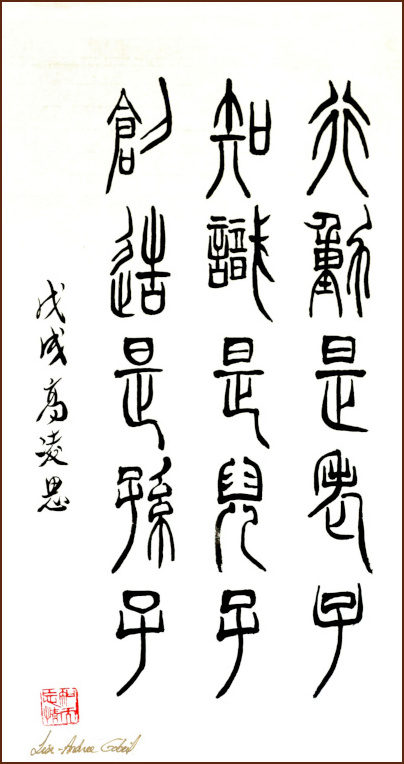 行動是老子
知識是兒子
創造是孫子
戊戌高凌思
Lise-Andrée Gobeil